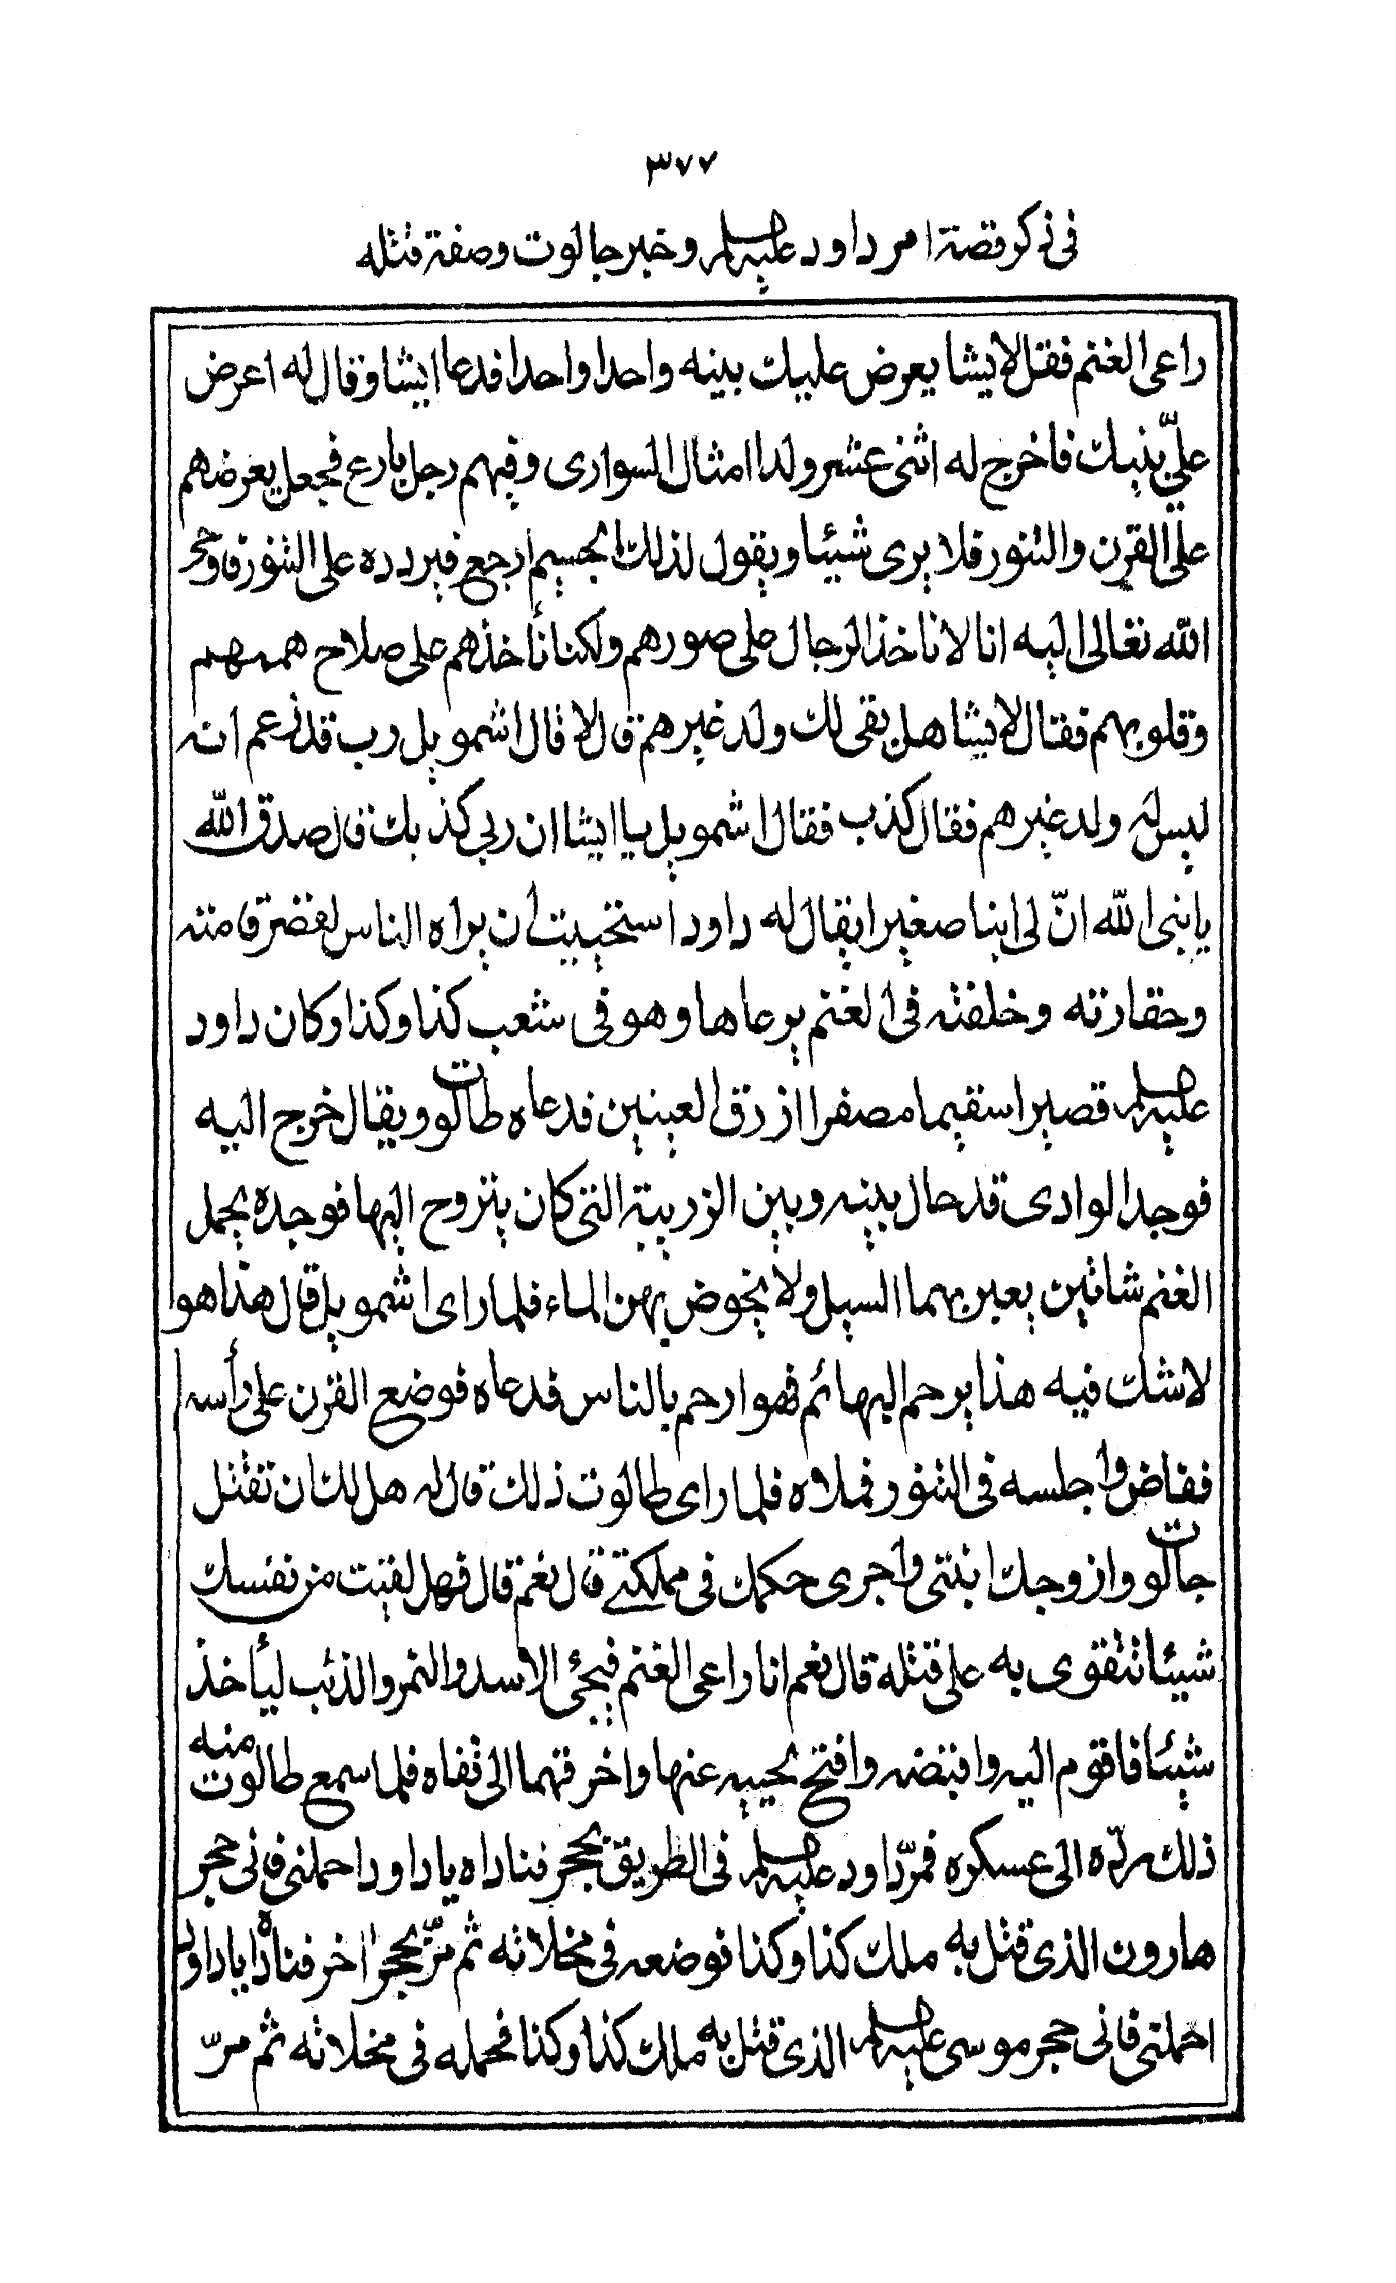 ٣٧٧
في ذكر قصة امر داود عليه السلام وخبر جالوت وصفة قتله
راعى الغنم فقل لايشا يعرض عليك بينه واحدا واحدا فدعا ايشا وقال له اعرض
علىّ بنيك فاخرج له اثنى عشر ولدا امثال السوارى وفيهم رجل بارع فجعل يعرضهم
على القرن والتنور فلا يرى شيئا ويقول لذلك الجسيم ارجع فيردده على التنور فاوحى
الله تعالى اليه انا لا ناخذ الرجال على صورهم ولكنا نأخذهم على صلاح هممهم
وقلوبهم فقال لايشا هل بقى لك ولد غيرهم قال لا قال اشمويل رب قد زعم انه
ليس له ولد غيرهم فقال كذب فقال اشمويل يا ايشا ان ربي كذبك قال صدق الله
يا نبى الله انّ لى ابنا صغيرا يقال له داود استحييت ان يراه الناس لقصر قامته
وحقارته وخلفته فى الغنم يرعاها وهو فى شعب كذا وكذا وكان داود
عليه السلام قصيرا سقيما مصفرا ازرق العينين فدعاه طالوت ويقال خرج اليه
فوجد الوادى قد حال بينه وبين الزريبة التى كان يتروح اليها فوجده يحمل
الغنم شاتين يعبر بهما السيل ولا يخوض بهن الماء فلما راى اشمويل قال هذا هو
لا شك فيه هذا يرحم البهائم فهو ارحم بالناس فدعاه فوضع القرن على رأسه
ففاض واجلسه فى التنور فملاه فلما راى طالوت ذلك قال له هل لك ان تقتل
جالوت وازوجك ابنتى واجرى حكمك فى مملكتى قال نعم قال فهل لقيت من نفسك
شيئا تتقوى به على قتله قال نعم انا راعى الغنم فيجئ الاسد والنمر والذئب ليأخذ
شيئا فاقوم اليه واقبضه وافتح لحييه عنها واخرقهما الى قفاه فلما سمع طالوت منه
ذلك ردّه الى عسكره فمرّ داود عليه السلام فى الطريق بحجر فناداه يا داود احملنى فانى حجر
هارون الذى قتل به ملك كذا وكذا فوضعه فى مخلاته ثم مرّ بحجر اخر فناداه يا داود
احملنى فانى حجر موسى عليه السلام الذى قتل به ملك كذا وكذا فحمله فى مخلاته ثم مرّ